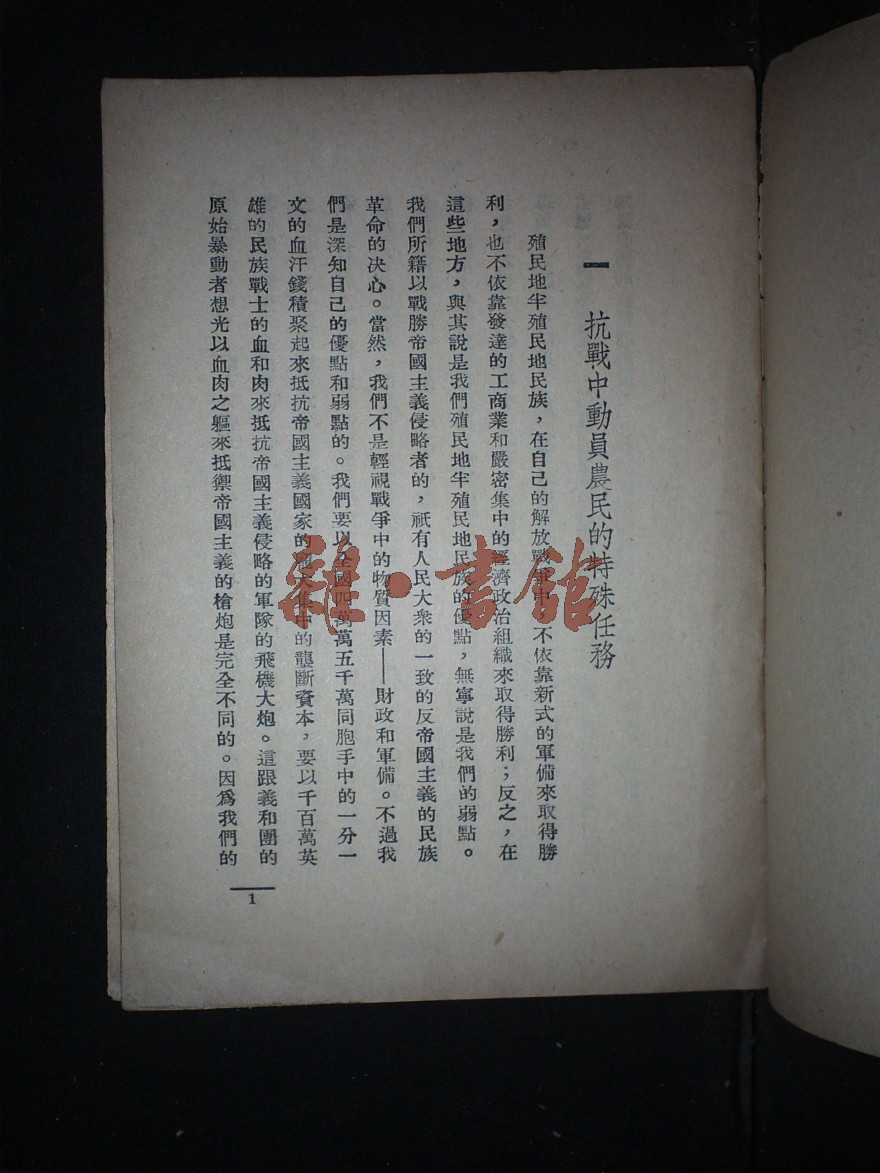 一 抗戰中動員農民的特殊任務
殖民地半殖民地民族，在自己的解放戰爭中，不依靠新式的軍備來取得勝
利，也不依靠發達的工商業和嚴密集中的經濟政治組織來取得勝利；反之，在
這些地方，與其說是我們殖民地半殖民地民族的優點，無寧說是我們的弱點。
我們所藉以戰勝帝國主義侵略者的，祇有人民大衆的一致的反帝國主義的民族
革命的决心。當然，我們不是輕視戰爭中的物質因素——財政和軍備。不過我
們是深知自己的優點和弱點的。我們要以全國四萬萬五千萬同胞手中的一分一
文的血汗錢積聚起來抵抗帝國主義國家的集中的壟斷資本，要以千百萬英
雄的民族戰士的血和肉來抵抗帝國主義侵略的軍隊的飛機大炮。這跟義和團的
原始暴動者想光以血肉之軀來抵禦帝國主義的槍炮是完全不同的。因爲我們的
1
雜·書館